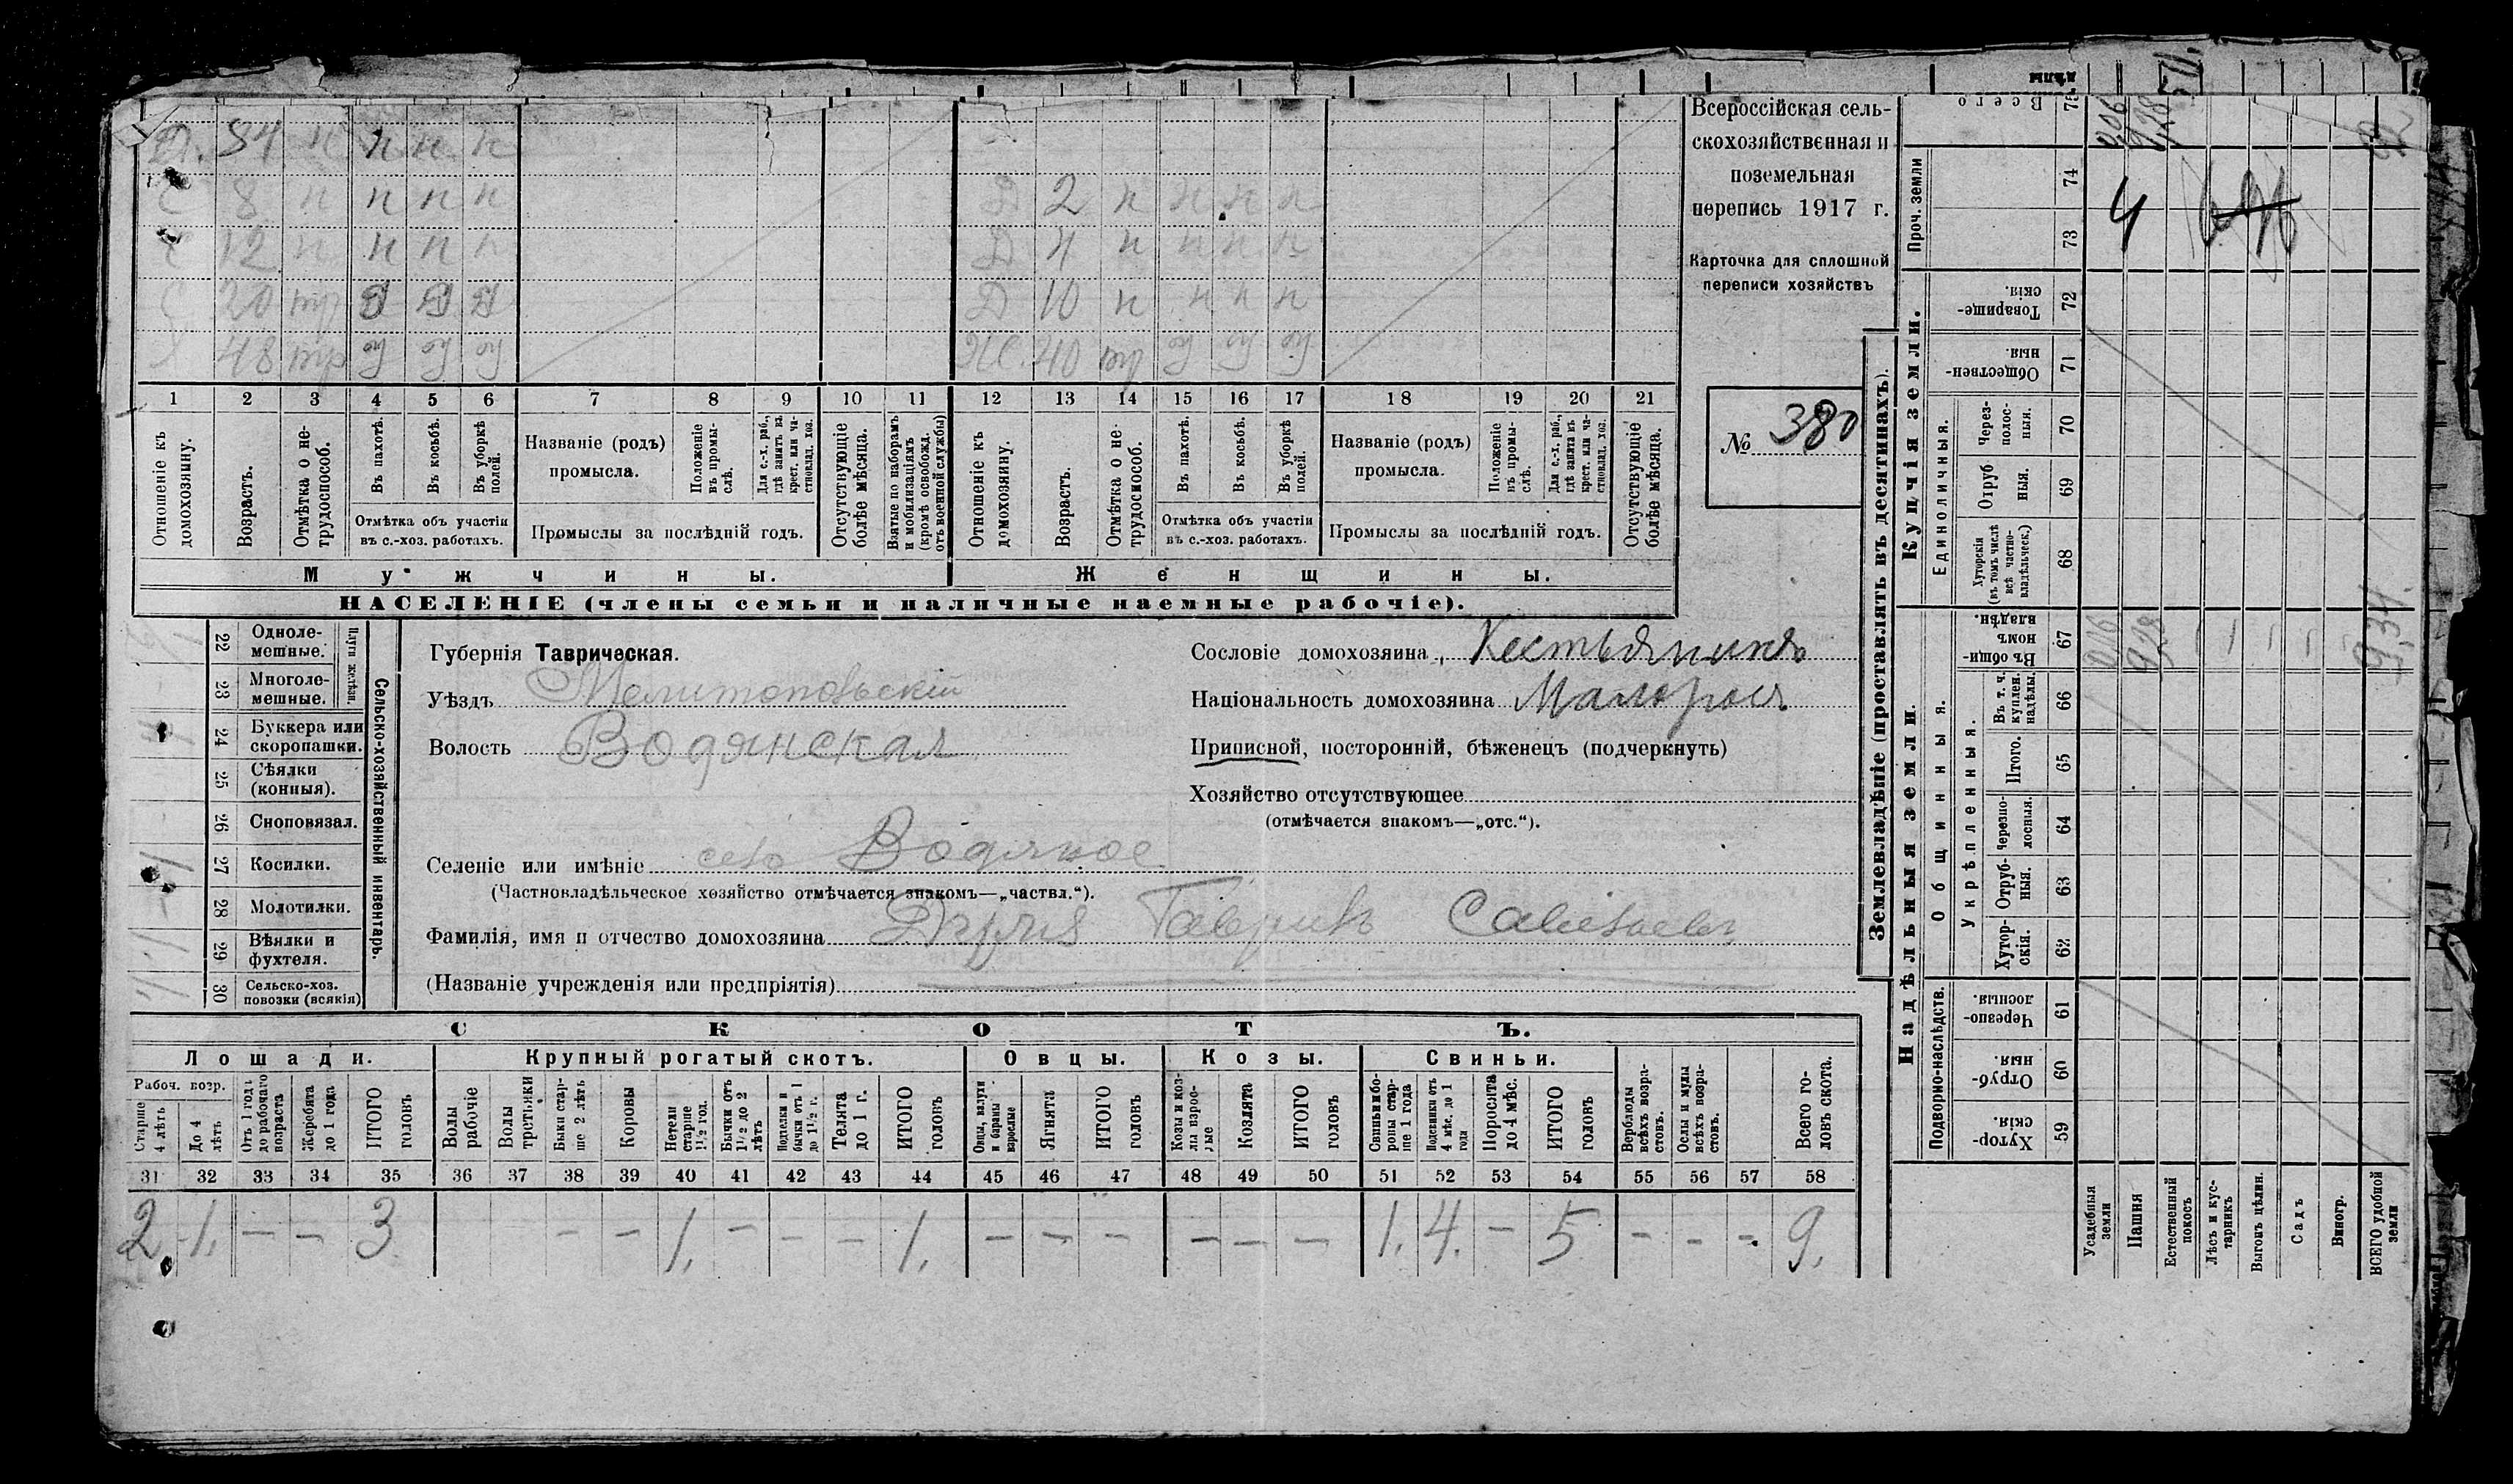 Всероссійская сель-
скохозяйственная и
поземельная
перепись 1917 г.
Карточка для сплошной
переписи хозяйствъ
№ 380
Д. 34 н н н н
С 8 н н н н
С 12 н н н н
С 20 п п п
Х 48
Д 2 н н н н н
Д 4 н н н н
Д 10 н н н н
Ж. 40
1 2 3 4 5 6 7 8 9 10 11 12 13 14 15 16 17 18 19 20 21
Отношеніе къ домохозяину.
Возрастъ.
Отмѣтка о не-трудоспособ.
Въ пахотѣ.
Въ косьбѣ.
Въ уборкѣ полей.
Отмѣтка объ участіи въ с.-хоз. работахъ.
Названіе (родъ) промысла.
Положеніе въ промы-слѣ.
Для с.-х. раб., гдѣ занятъ въ крест. или ча-стновлад. хоз.
Промыслы за послѣдній годъ.
Отсутствующіе болѣе мѣсяца.
Взятые по наборамъ и мобилизаціямъ (кромѣ освобожд. отъ военной службы)
Отношеніе къ домохозяину.
Возрастъ.
Отмѣтка о не-трудоспособ.
Въ пахотѣ.
Въ косьбѣ.
Въ уборкѣ полей.
Отмѣтка объ участіи въ с.-хоз. работахъ.
Названіе (родъ) промысла.
Положеніе въ промы-слѣ.
Для с.-х. раб., гдѣ занятъ въ крест. или ча-стновлад. хоз.
Промыслы за послѣдній годъ.
Отсутствующіе болѣе мѣсяца.
Мужчины. Женщины.
НАСЕЛЕНІЕ (члены семьи и наличные наемные рабочіе).
Сельско-хозяйственный инвентарь.
Плуги желѣзн.
22 Одноле-мешные.
23 Многоле-мешные.
24 Буккера или скоропашки.
25 Сѣялки (конныя).
26 Сноповязал.
27 Косилки.
28 Молотилки.
29 Вѣялки и фухтеля.
30 Сельско-хоз. повозки (всякія)
Губернія Таврическая.
Уѣздъ Мелитопольскій
Волость Водянская
Селеніе или имѣніе село Водяное
(Частновладѣльческое хозяйство отмѣчается знакомъ—„частвл.“).
Фамилія, имя и отчество домохозяина Гаврилъ Савельевъ
(Названіе учрежденія или предпріятія)
Сословіе домохозяина Кестьянинъ
Національность домохозяина Малорос.
Приписной, посторонній, бѣженецъ (подчеркнуть)
Хозяйство отсутствующее
(отмѣчается знакомъ—„отс.“).
СКОТЪ.
Лошади. Крупный рогатый скотъ. Овцы. Козы. Свиньи.
Рабоч. возр.
Старше 4 лѣтъ
До 4 лѣтъ
Отъ 1 года до рабочаго возраста
Жеребята до 1 года
ИТОГО головъ
Волы рабочіе
Волы третьяки
Быки стар-ше 2 лѣтъ
Коровы
Нетели старше 1½ год.
Бычки отъ 1½ до 2 лѣтъ
Подтелки и бычки отъ 1 до 1½ г.
Телята до 1 г.
ИТОГО головъ
Овцы, валухи и бараны взрослые
Ягнята
ИТОГО головъ
Козы и коз-лы взрос-лые
Козлята
ИТОГО головъ
Свиньи и бо-ровы стар-ше 1 года
Подсвинки отъ 4 мѣс. до 1 года
Поросята до 4 мѣс.
ИТОГО головъ
Верблюды всѣхъ возра-стовъ.
Ослы и мулы всѣхъ возра-стовъ.
Всего го-ловъ скота.
31 32 33 34 35 36 37 38 39 40 41 42 43 44 45 46 47 48 49 50 51 52 53 54 55 56 57 58
2 1. — — 3 — — 1. — — — 1. — — — — — — 1. 4. — 5 — — — 9.
Землевладѣніе (проставлять въ десятинахъ).
Надѣльныя земли. Купчія земли. Проч. земли
Подворно-наслѣдств. Общинныя. Укрѣпленныя. Единоличныя.
59 Хутор-скія.
60 Отруб-ныя.
61 Черезпо-лосныя.
62 Хутор-скія.
63 Отруб-ныя.
64 Черезпо-лосныя.
65 Итого.
66 Въ т. ч. куплен. надѣлы.
67 Въ общи-номъ владѣн.
68 Хуторскія (въ томъ числѣ всѣ частно-владѣльческ.)
69 Отруб ныя.
70 Через-полос-ныя.
71 Обществен-ныя.
72 Товарище-скія.
73
74
75 Всего
Усадебныя земли
Пашня
Естественный покосъ
Лѣсъ и кус-тарникъ
Выгонъ цѣлин.
Садъ
Виногр.
ВСЕГО удобной земли
4
9,34.